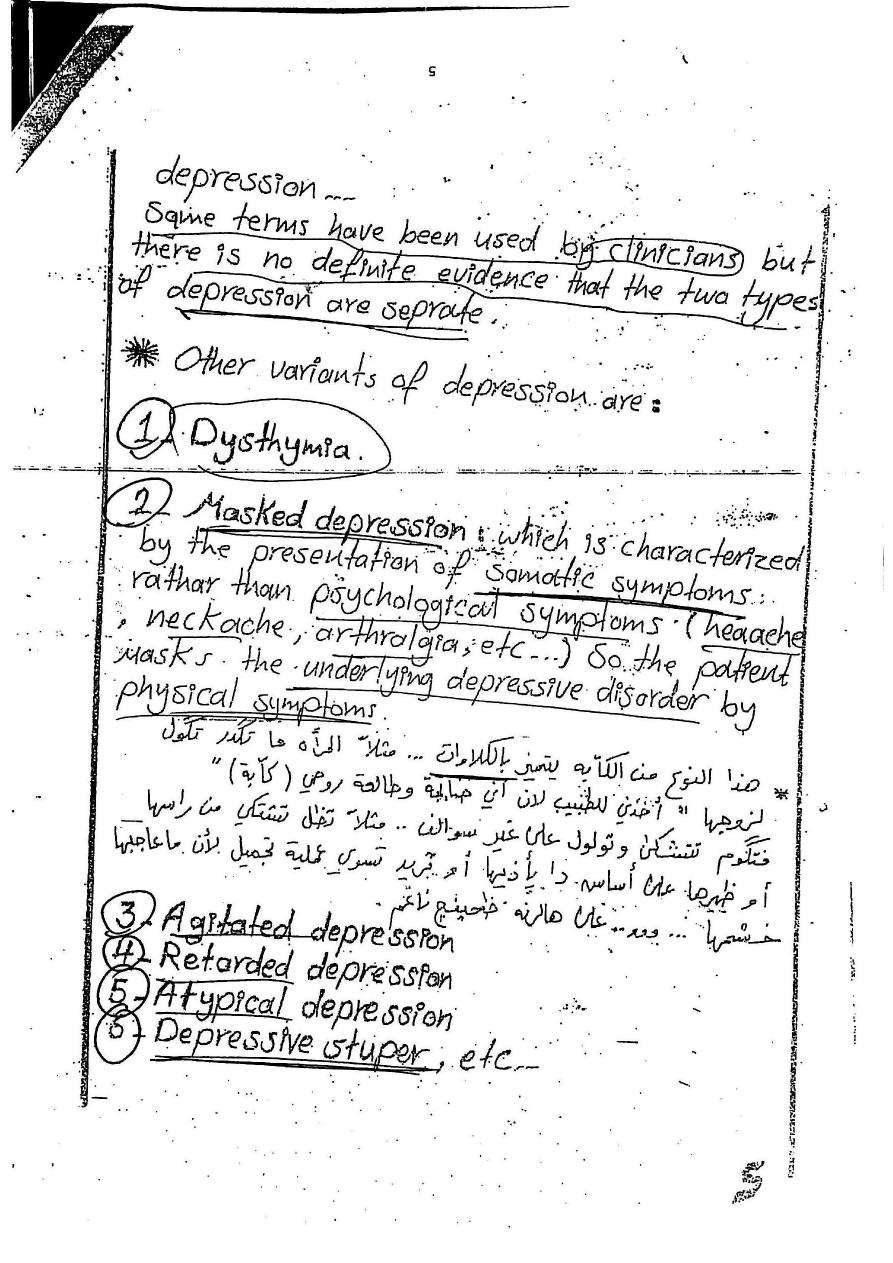 5
depression ....
Same terms have been used by clinicians but
there is no definite evidence that the two types
of depression are seprate.
* Other variants of depression are :
1. Dysthymia.
2 Masked depression : which is characterized
by the presentation of Somatic symptoms
rathar than psychological symptoms (heaache
, neckache, arthralgia, etc...) So the patient
masks the underlying depressive disorder by
physical symptoms.
* هذا النوع من الكآبه يتميز بالكلاوات ... مثلاً المرأه ما تگدر تگول
لزوجها " أخذني للطبيب لأن آني ضايجة وطالعة روحي (كآبة) "
فتگوم تتشكى وتولول على غير سوالف .. مثلاً تظل تشتكي من راسها
أو ظهرها على أساس دا يأذيها أو تريد تسوي عملية تجميل لأن ماعاجبها
خشمها ... على هالرنه طحينج ناعم .
3- Agitated depression
4- Retarded depression
5- Atypical depression
6- Depressive stuper, etc...
5